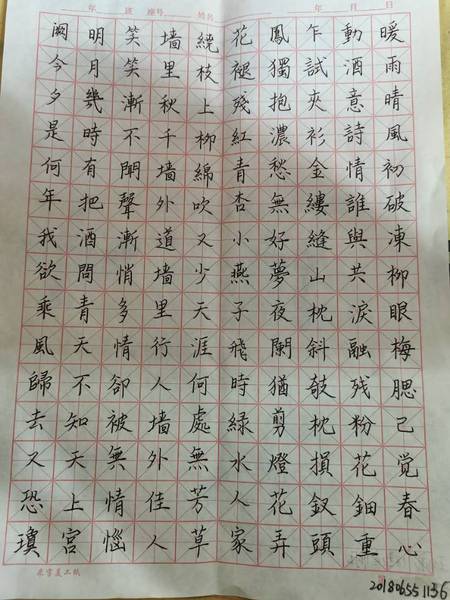 年 班 座号 姓名 年 月 日
暖雨晴風初破凍柳眼梅腮己覚春心
動酒意詩情誰與共淚融残粉花鈿重
乍試夾衫金縷縫山枕斜攲枕損釵頭
鳳獨抱濃愁無好夢夜闌猶剪燈花弄
花褪殘紅青杏小燕子飛時綠水人家
繞枝上柳綿吹又少天涯何處無芳草
墙里秋千墙外道墙里行人墙外佳人
笑笑漸不聞聲漸悄多情卻被無情惱
明月幾時有把酒問青天不知天上宮
闕今夕是何年我欲乘風歸去又恐瓊
201806551136